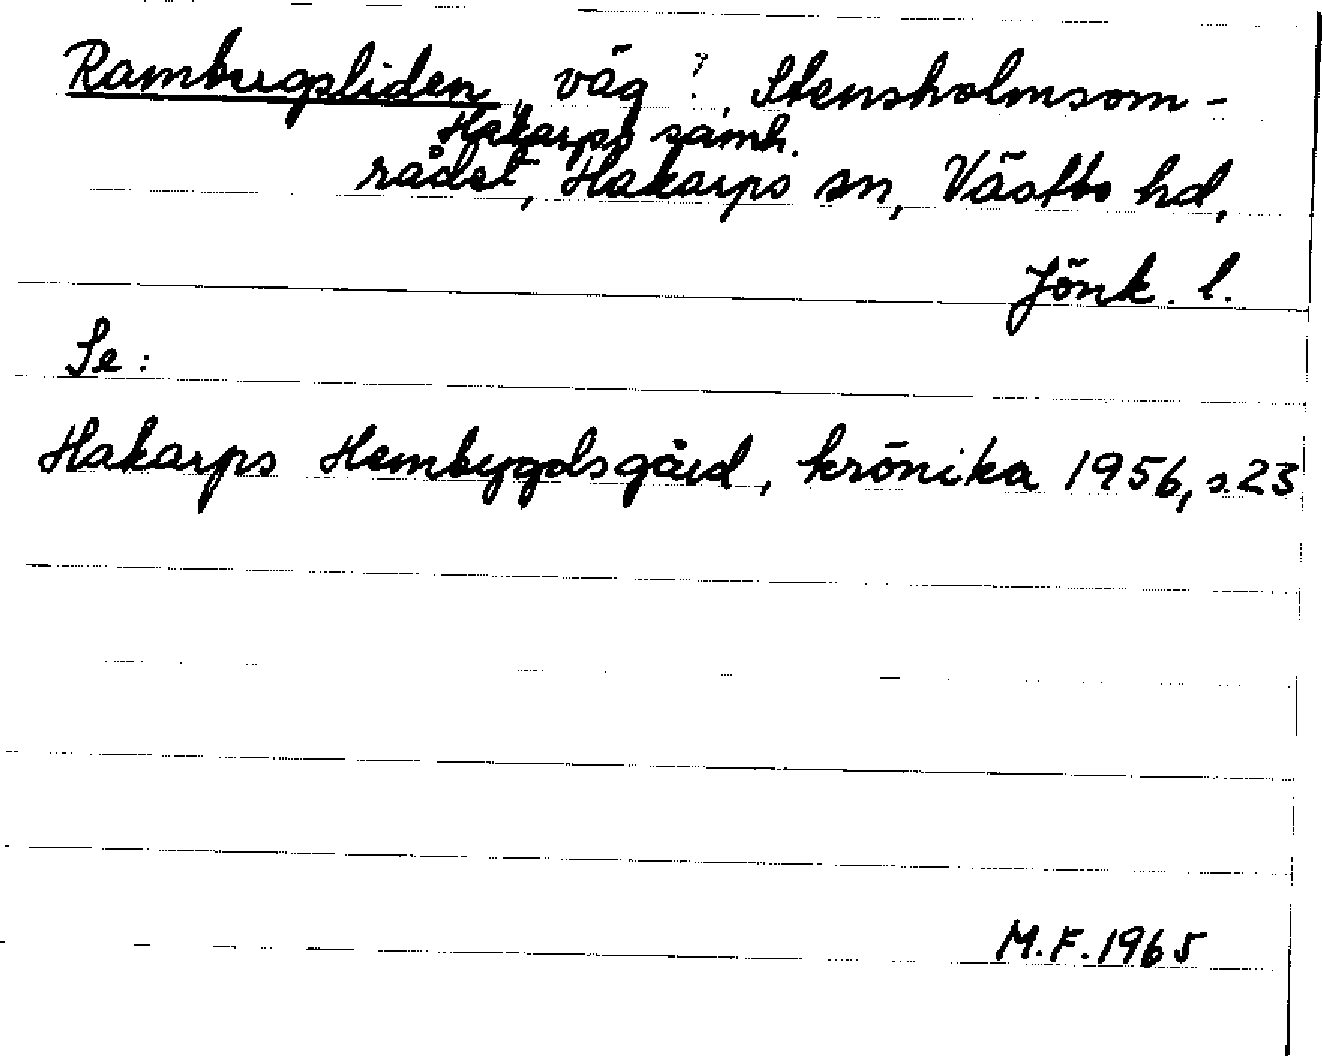 Rambergsliden, väg ?, Stensholmsom-
Hakarps samh.
rådet, Hakarps sn, Västbo hd,
Jönk. l.
Se:
Hakarps Hembygdsgård, krönika 1956, s. 23
M.F. 1965